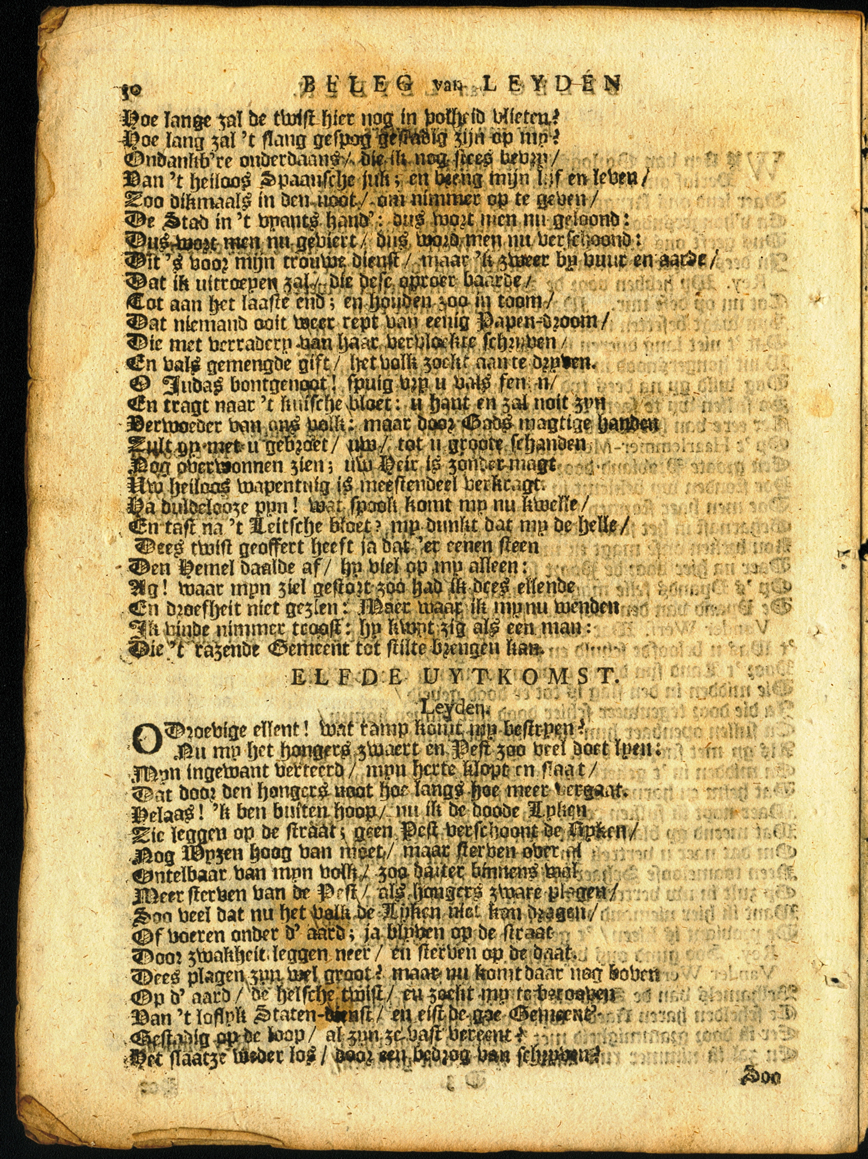 30 BELEG van LEYDEN
Hoe lange zal de twist hier nog in volheid vlieten?
Hoe lang zal 't slang gespog gestadig zijn op my?
Ondankb're onderdaans / die ik nog steets bevry /
Van 't heiloos Spaansche juk; en breng mijn lijf en leven /
Zoo dikmaals in den noot / om nimmer op te geven /
De Stad in 't vyants hand': dus wort men nu geloond:
Dus wort men nu geviert / dus word men nu verschoond:
Dit 's voor mijn trouwe dienst / maar 'k zweer by vuur en aarde /
Dat ik uitroepen zal / die dese oproer baarde /
Tot aan het laaste end; en houden zoo in toom /
Dat niemand ooit weer rept van eenig Papen-droom /
Die met verradery van haar vervloekte schryven /
En vals gemengde gift / het volk zoekt aan te dryven.
O Judas bontgenoot! spuig vry u vals fenyn /
En tragt naar 't kuische bloet: u hant en zal noit zyn
Verwoeder van ons volk: maar door Gods magtige handen
Zult gy met u gebroet / uw / tot u groote schanden
Nog overwonnen zien; uw Heir is zonder magt
Uw heiloos wapentuig is meestendeel verkragt.
Ha duldelooze pyn! wat spook komt my nu kwelle /
En tast na 't Leitsche bloet? my dunkt dat my de helle /
Dees twist geoffert heeft ja dat 'er eenen steen
Den Hemel daalde af / hy viel op my alleen:
Ag! waar myn ziel gestort zoo had ik dees ellende
En droefheit niet gezien: Maer waar ik my nu wenden
Ik vinde nimmer troost: hy kwyt zig als een man:
Die 't razende Gemeent tot stilte brengen kan.
ELFDE UYTKOMST.
Leyden.
O Droevige ellent! wat ramp komt my bestryen?
Nu my het hongers zwaert en Pest zoo veel doet lyen:
Myn ingewant verteerd / myn herte klopt en slaat /
Dat door den hongers noot hoe langs hoe meer vergaat.
Helaas! 'k ben buiten hoop / nu ik de doode Lyken
Zie leggen op de straat; geen Pest verschoont de Ryken /
Nog Wyzen hoog van moet / maar sterven over al
Ontelbaar van myn volk / zoo datter binnens wal
Meer sterven van de Pest / als hongers zware plagen /
Soo veel dat nu het volk de Lyken niet kan dragen /
Of voeren onder d' aard; ja blyven op de straat
Door zwakheit leggen neer / en sterven op de daat.
Dees plagen zyn wel groot? maar nu komt daar nog boven
Op d' aard / de helsche twist / en zoekt my te berooven
Van 't loflyk Staten-dienst / en eist de goe Gemeent?
Gestadig op de loop / al zyn ze vast vereent?
Het slaatze weder los / door een bedrog van schryven?
Soo